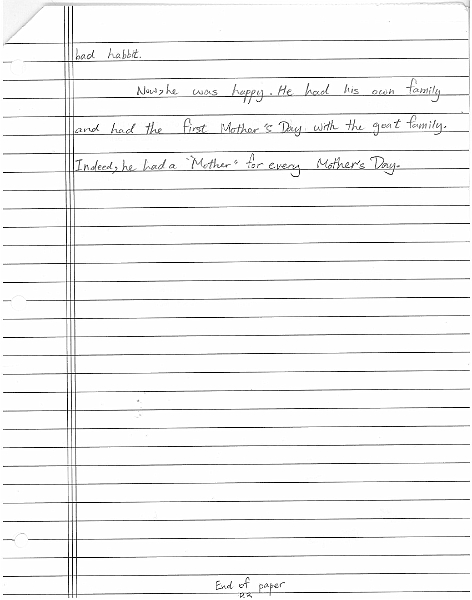 bad habbit.
Now, he was happy. He had his own family
and had the first Mother's Day. with the goat family.
Indeed, he had a "Mother" for every Mother's Day.
End of paper